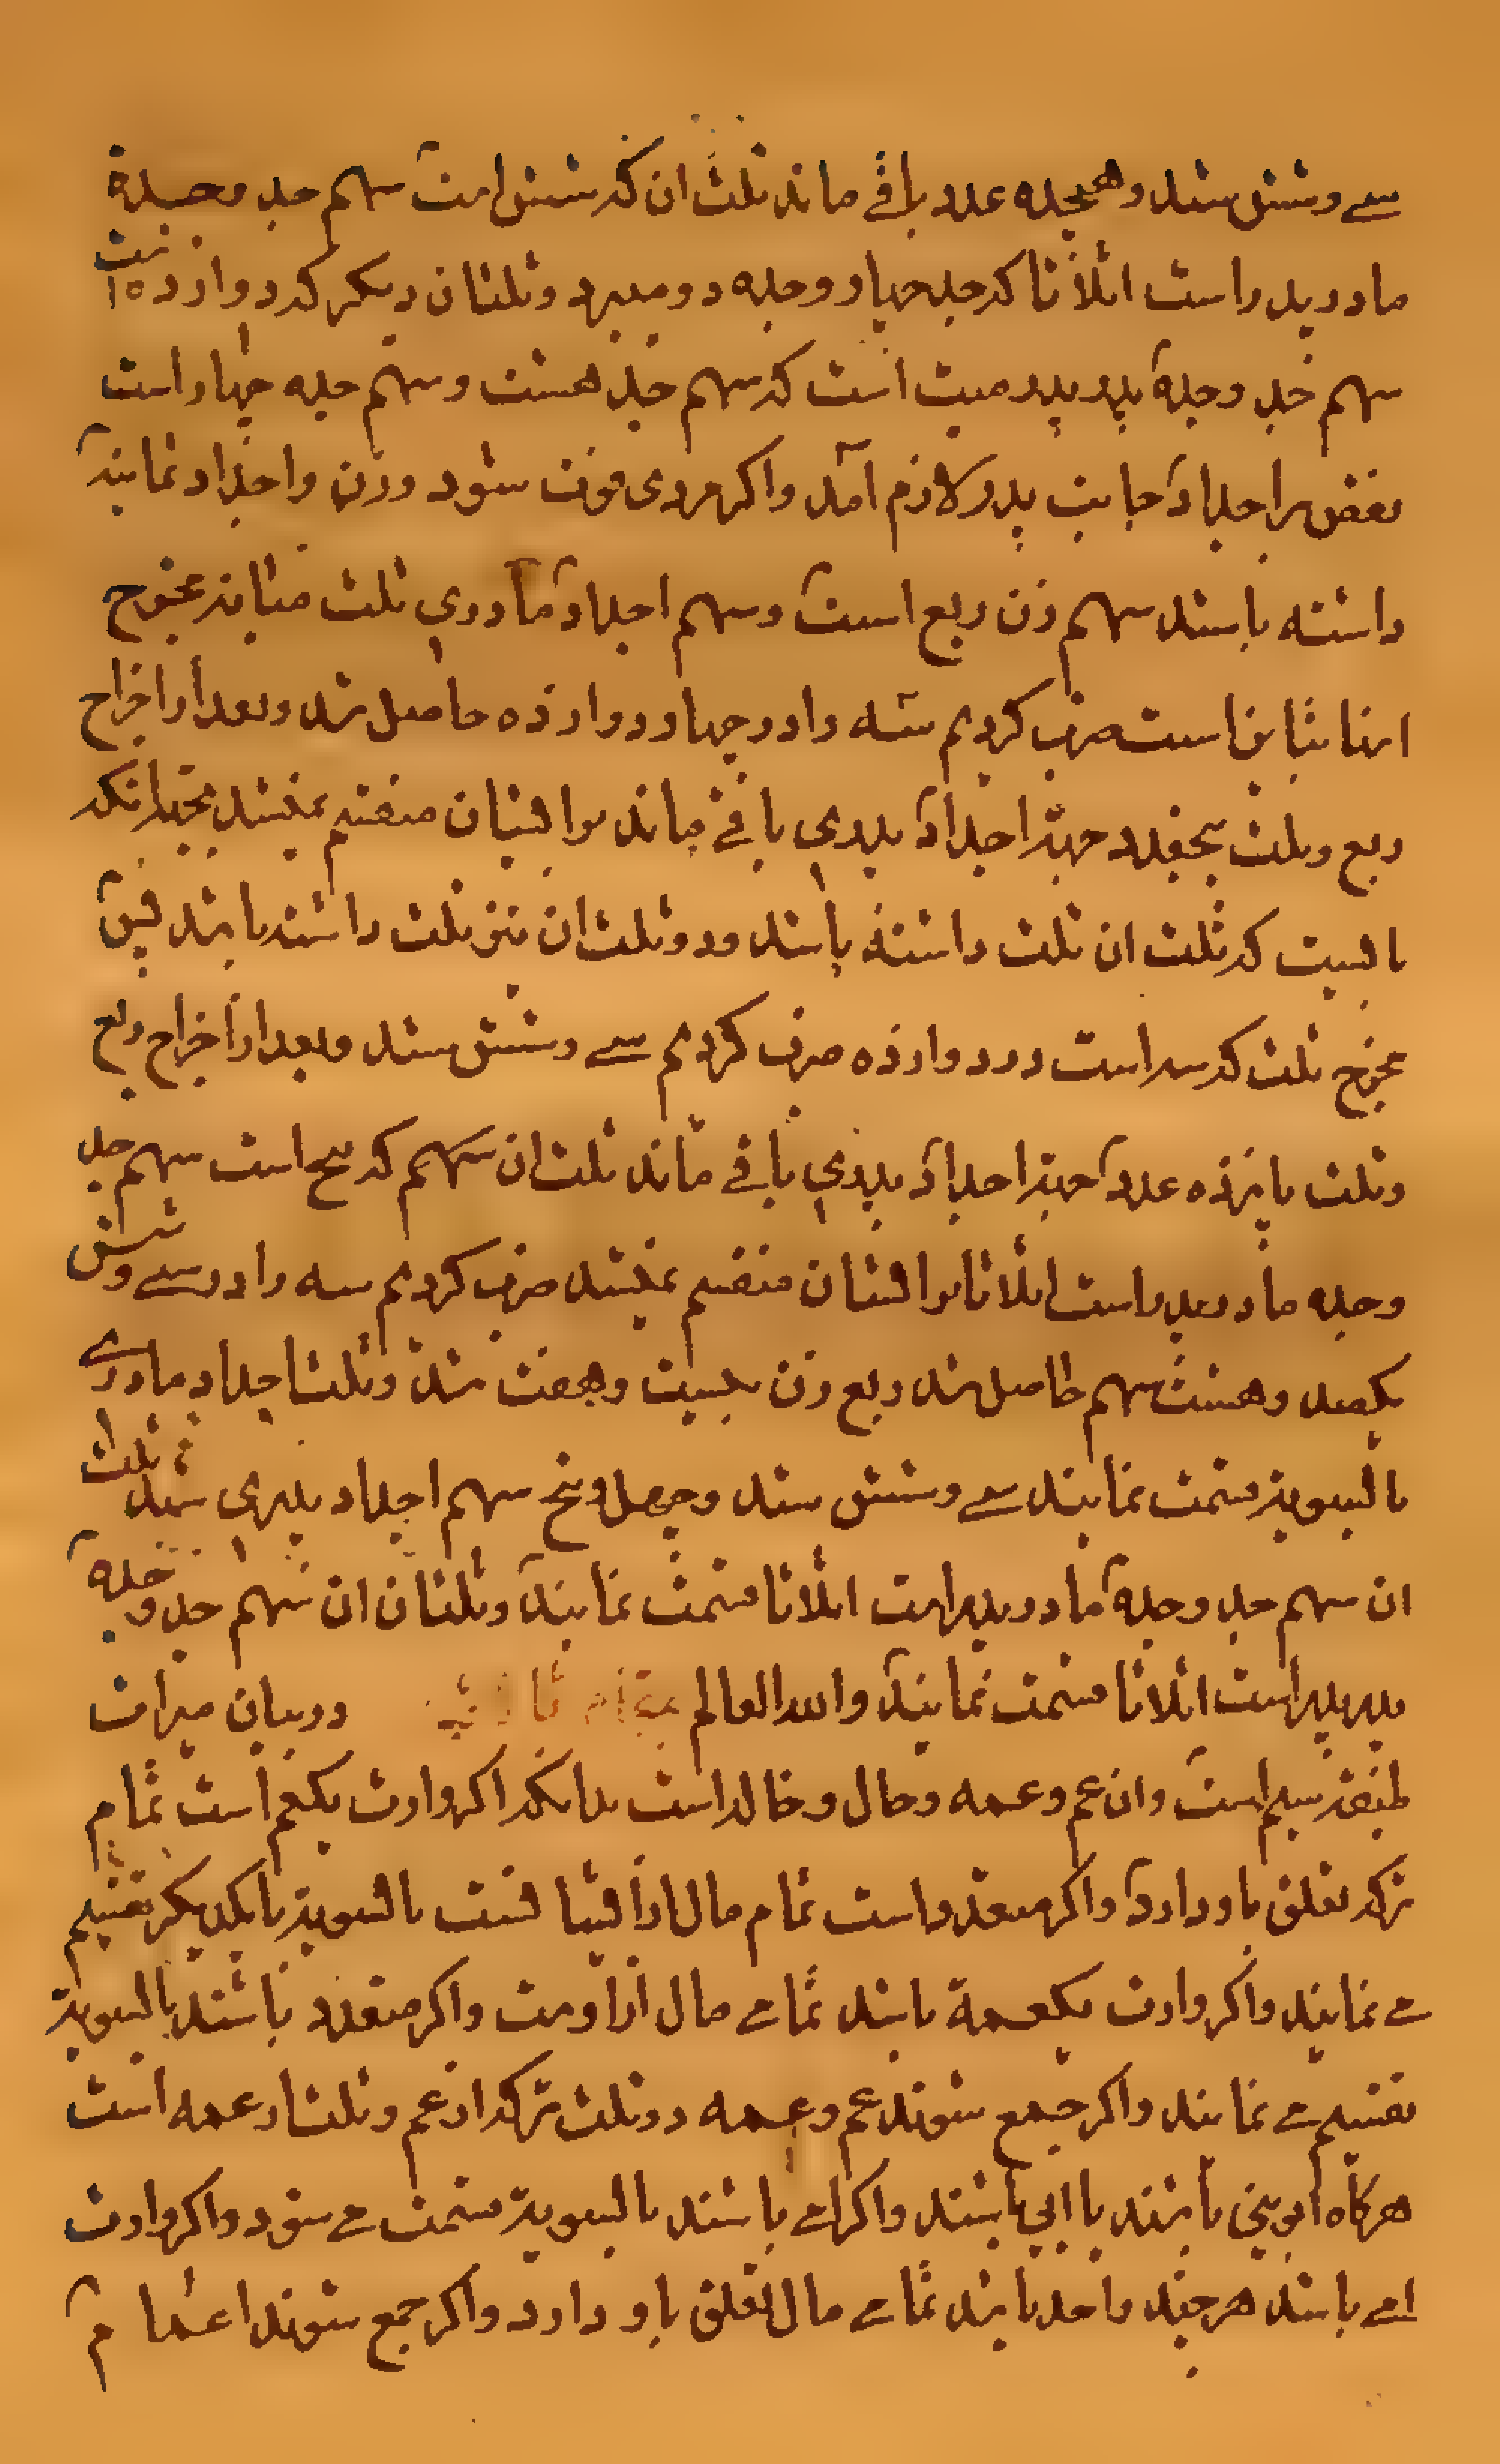 سے وشش شد وهیجده عدد باقے ماند ثلث ان که شش است سهم جد وجدهٔ
مادر پدر است اثلاثا که جد چهار وجده دو میبرد وثلثان دیکر که دوازده است
سهم جد وجدهٔ پدر پدر میت است که سهم جد هشت وسهم جده چهار است
نقض بر اجداد جانب پدر لازم آمد واکر مردی فوت شود وزن واجداد ثمانیه
داشته باشد سهم زن ربع است وسهم اجداد مادری ثلث میانه مخرج
اینها تباین است ضرب کردیم سه را در چهار دوازده حاصل شد وبعد از اخراج
ربع وثلث پنجعدد جهة اجداد پدری باقے ماند بر ایشان منقسم نمیشد بجهة آنکه
بایست که ثلث ان ثلث داشته باشد ودو ثلث ان نیز ثلث داشته باشد پس
مخرج ثلث که سه است در دوازده ضرب کردیم سے وشش شد وبعد از اخراج ربع
وثلث پانزده عدد جهة اجداد پدری باقے ماند ثلث ان سهم که پنج است سهم جد
وجده مادر پدر است اثلاثا بر ایشان منقسم نمیشد ضرب کردیم سه را در سے وشش
یکصد وهشت سهم حاصل شد ربع زن بیست وهفت شد وثلث اجداد مادرے
بالسویة قسمت نمایند سے وشش شد وچهل وپنج سهم اجداد پدری شد ثلث
ان سهم جد وجدهٔ مادر پدر است اثلاثا قسمت نمایند وثلثان ان سهم جد وجدهٔ
پدر پدر است اثلاثا قسمت نمایند والله العالم مقام ثالث در بیان میراث
طبقهٔ سیم است وان عم وعمه وخال وخاله است بدانکه اکر وارث یکعم است تمام
ترکه تعلق باو دارد واکر متعدد است تمام مال از ایشانست بالسویة با یکدیکر تقسیم
مے نمایند واکر وارث یکعمة باشد تمامے مال از اوست واکر متعدد باشند بالسویة
تقسیم مے نمایند واکر جمع شوند عم وعمه دو ثلث ترکه از عم وثلث از عمه است
هرکاه ابوینی باشند یا ابی باشند واکر امے باشند بالسویة قسمت مے شود واکر وارث
امے باشد هر چند واحد باشد تمامے مال تعلق باو دارد واکر جمع شوند اعمام